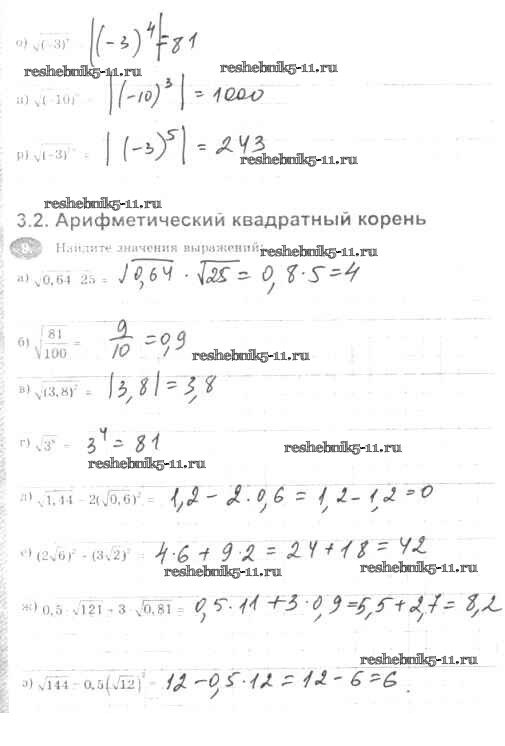 о) √(−3)⁸ = |(−3)⁴| = 81
reshebnik5-11.ru reshebnik5-11.ru
п) √(−10)⁶ = |(−10)³| = 1000
р) √(−3)¹⁰ = |(−3)⁵| = 243
reshebnik5-11.ru
reshebnik5-11.ru
3.2. Арифметический квадратный корень
9. Найдите значения выражений:
reshebnik5-11.ru
а) √0,64·25 = √0,64 · √25 = 0,8·5 = 4
б) √81/100 = 9/10 = 0,9
reshebnik5-11.ru
в) √(3,8)² = |3,8| = 3,8
г) √3⁸ = 3⁴ = 81
reshebnik5-11.ru
reshebnik5-11.ru
д) √1,44 − 2(√0,6)² = 1,2 − 2·0,6 = 1,2 − 1,2 = 0
е) (2√6)² + (3√2)² = 4·6 + 9·2 = 24 + 18 = 42
reshebnik5-11.ru reshebnik5-11.ru
ж) 0,5·√121 + 3·√0,81 = 0,5·11 + 3·0,9 = 5,5 + 2,7 = 8,2
reshebnik5-11.ru
з) √144 − 0,5(√12)² = 12 − 0,5·12 = 12 − 6 = 6.